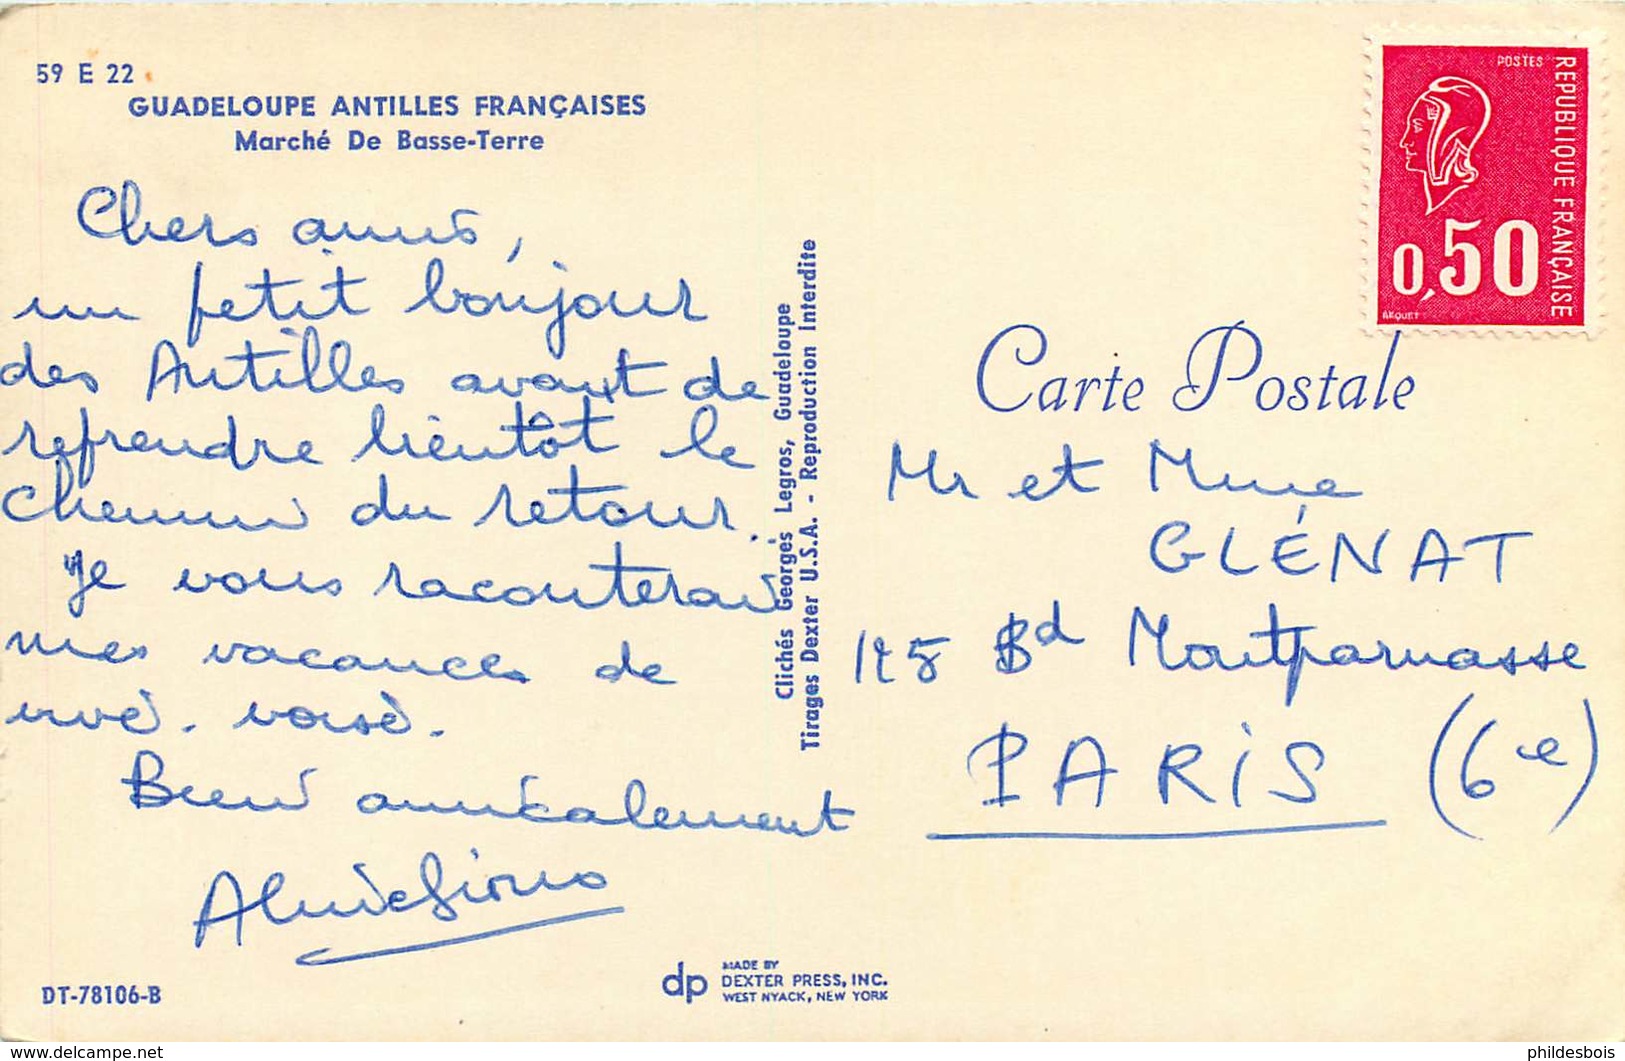 59 E 22
GUADELOUPE ANTILLES FRANÇAISES
Marché De Basse-Terre
Chers amis,
un petit bonjour
des Antilles avant de
reprendre bientôt le
chemin du retour.
Je vous raconterai
mes vacances de
vive voix.
Bien amicalement
DT-78106-B
Clichés Georges Legros, Guadeloupe
Tirages Dexter U.S.A. - Reproduction Interdite
dp
MADE BY
DEXTER PRESS, INC.
WEST NYACK, NEW YORK
POSTES
REPUBLIQUE FRANÇAISE
0,50
BEQUET
Carte Postale
Mr et Mme
GLÉNAT
125 Bd Montparnasse
PARIS (6e)
https://www.delcampe.net
phildesbois